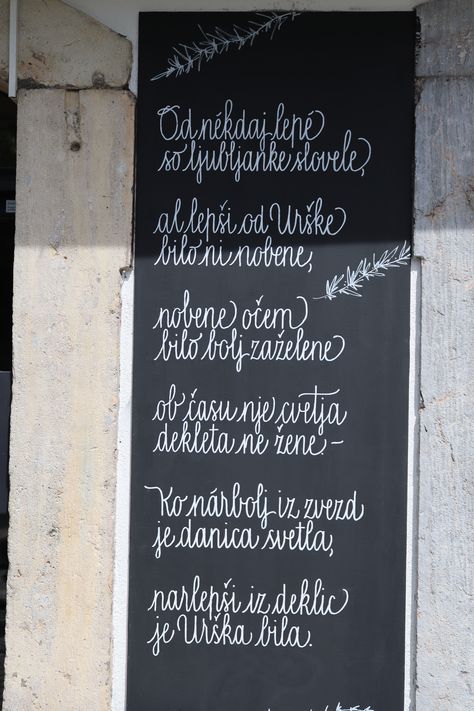 Od nékdaj lepé
so ljubljanke slovele,
al lepši od Urške
bilo ni nobene,
nobene očem
bilo bolj zaželene
ob času nje cvetja
dekleta ne žene –
Ko nárbolj iz zvezd
je danica svetla,
narlepši iz deklic
je Urška bila.